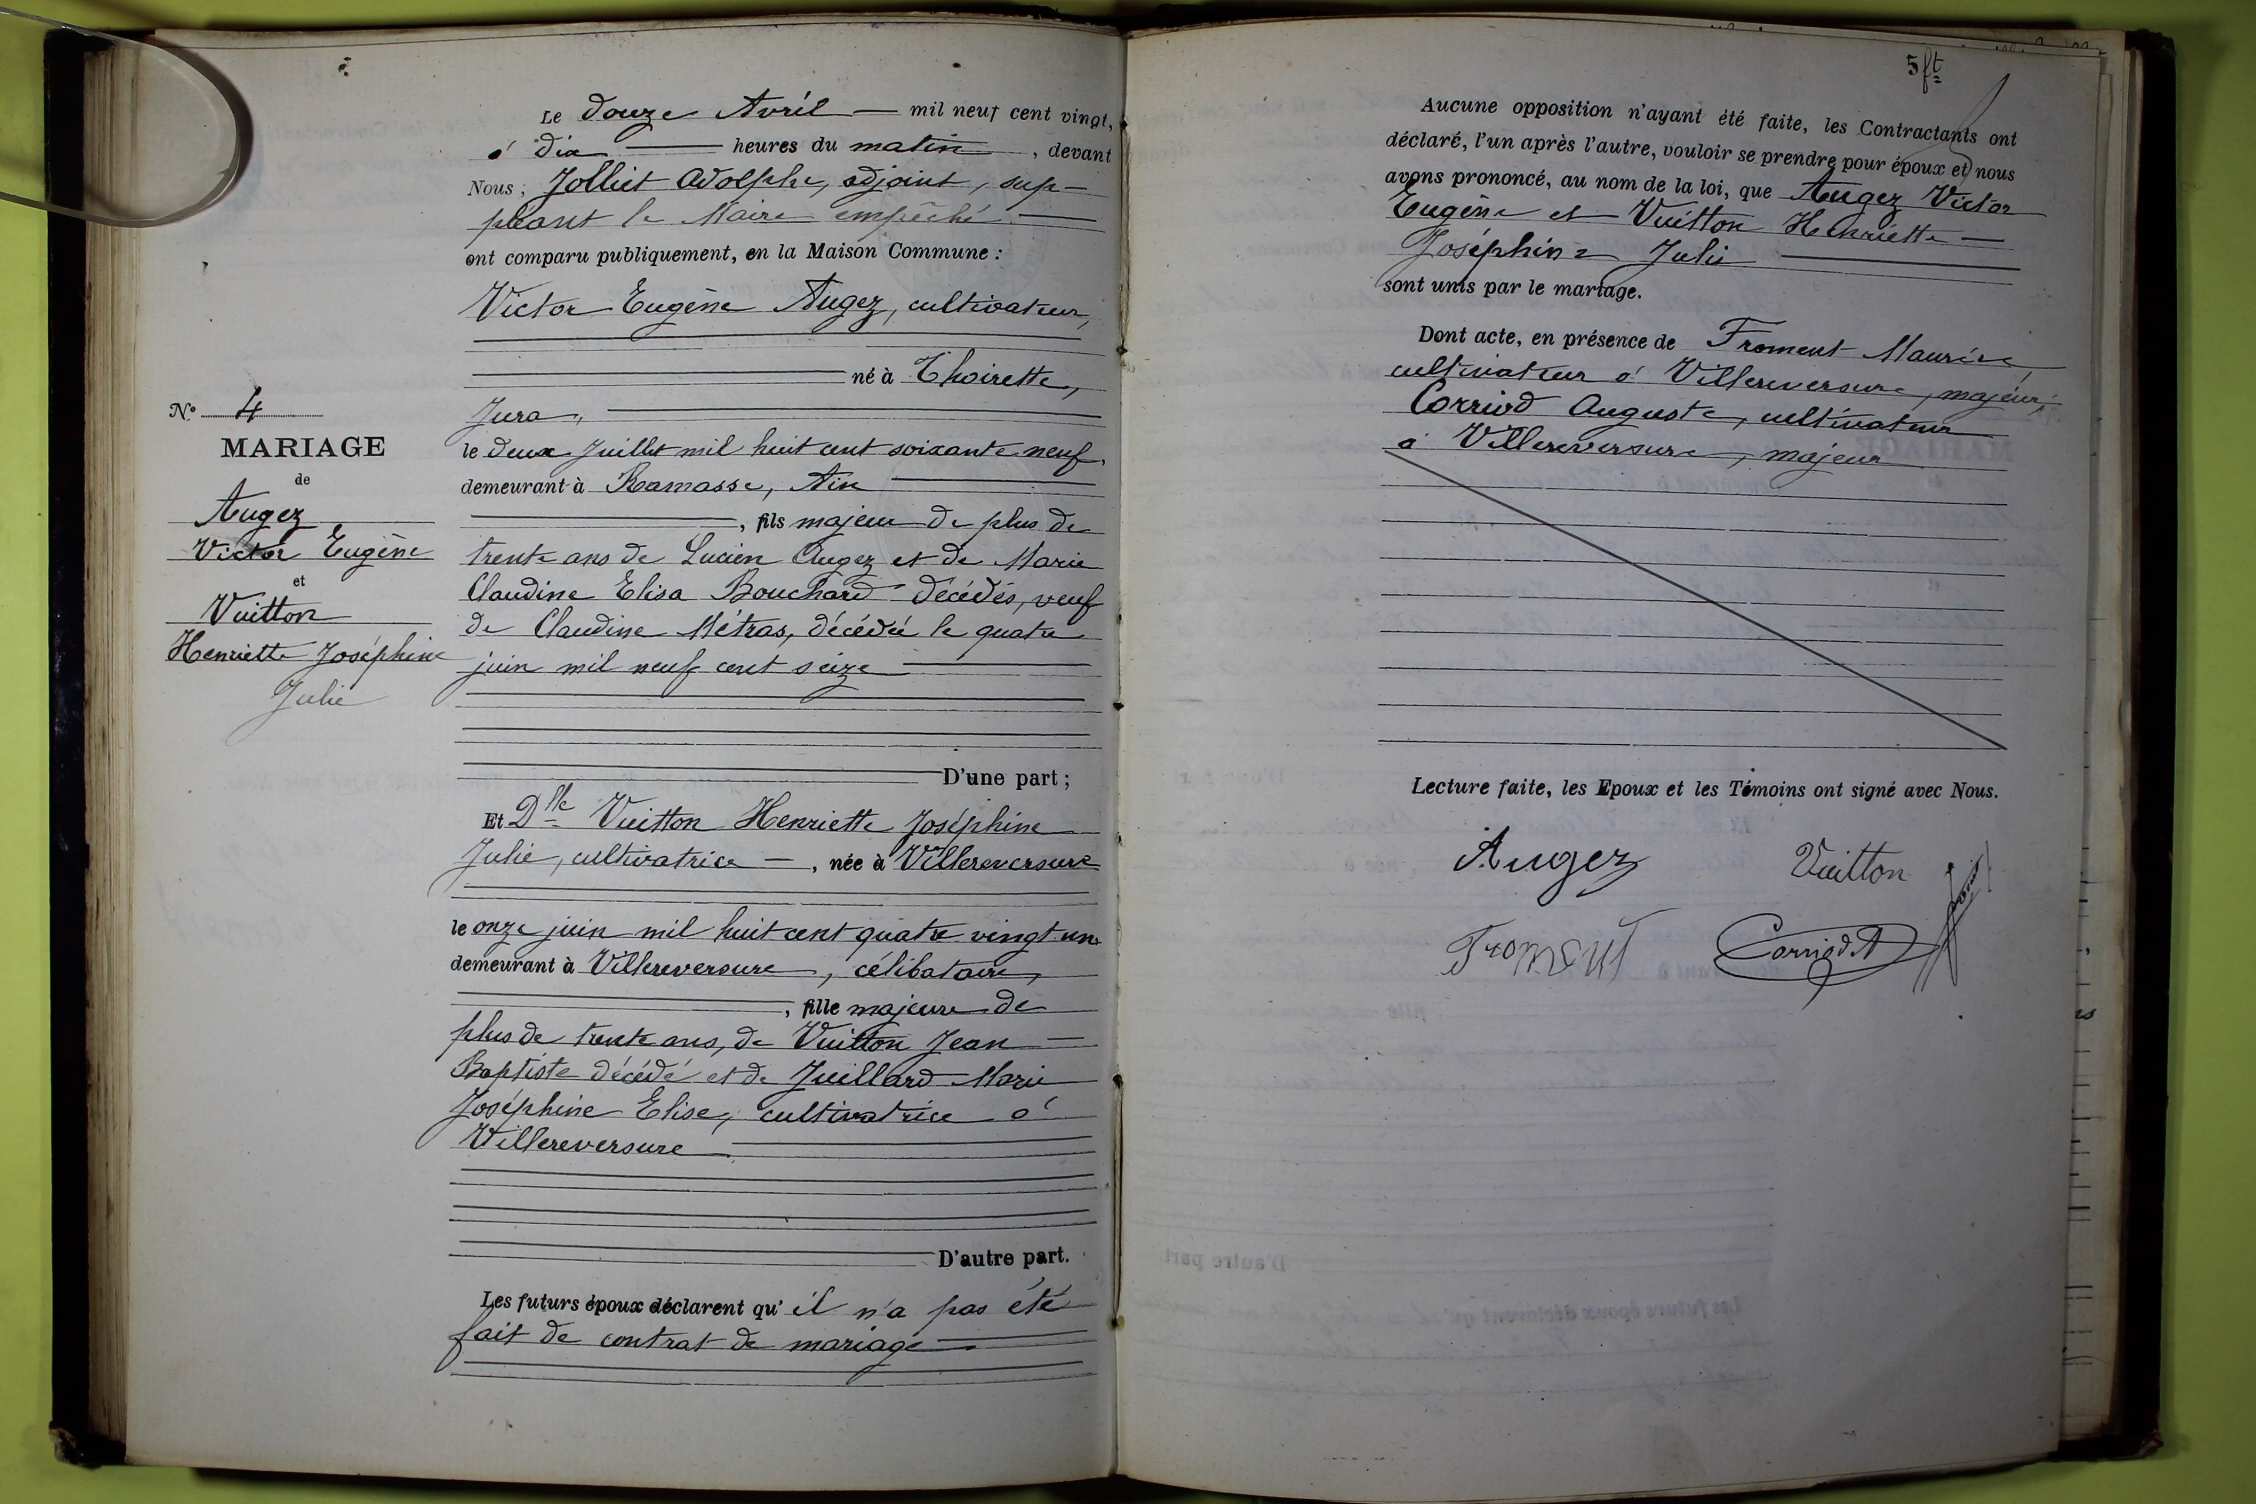 Le douze Avril — mil neuf cent vingt,
à dix — heures du matin, devant
Nous, Jolliet Adolphe, adjoint, sup-
pléant le Maire empêché —
ont comparu publiquement, en la Maison Commune :
Victor Eugène Augez, cultivateur,
né à Thoirette,
Jura,
le deux Juillet mil huit cent soixante neuf,
demeurant à Ramasse, Ain
, fils majeur de plus de
trente ans de Lucien Augez et de Marie
Claudine Elisa Bouchard décédés, veuf
de Claudine Métras, décédée le quatre
juin mil neuf cent seize
D'une part ;
Et Dlle Vuitton Henriette Joséphine
Julie, cultivatrice —, née à Villereversure
le onze juin mil huit cent quatre vingt un
demeurant à Villereversure, célibataire,
, fille majeure de
plus de trente ans, de Vuitton Jean —
Baptiste décédé et de Juillard Marie
Joséphine Elise, cultivatrice à
Villereversure
D'autre part.
Les futurs époux déclarent qu'il n'a pas été
fait de contrat de mariage
N° 4
MARIAGE
de
Augez
Victor Eugène
et
Vuitton
Henriette Joséphine
Julie
5 ft
Aucune opposition n'ayant été faite, les Contractants ont
déclaré, l'un après l'autre, vouloir se prendre pour époux et nous
avons prononcé, au nom de la loi, que Augez Victor
Eugène et Vuitton Henriette —
Joséphine Julie
sont unis par le mariage.
Dont acte, en présence de Froment Maurice,
cultivateur à Villereversure, majeur,
Corriod Auguste, cultivateur
à Villereversure, majeur
Lecture faite, les Epoux et les Témoins ont signé avec Nous.
Augez Vuitton
Froment Corriod A